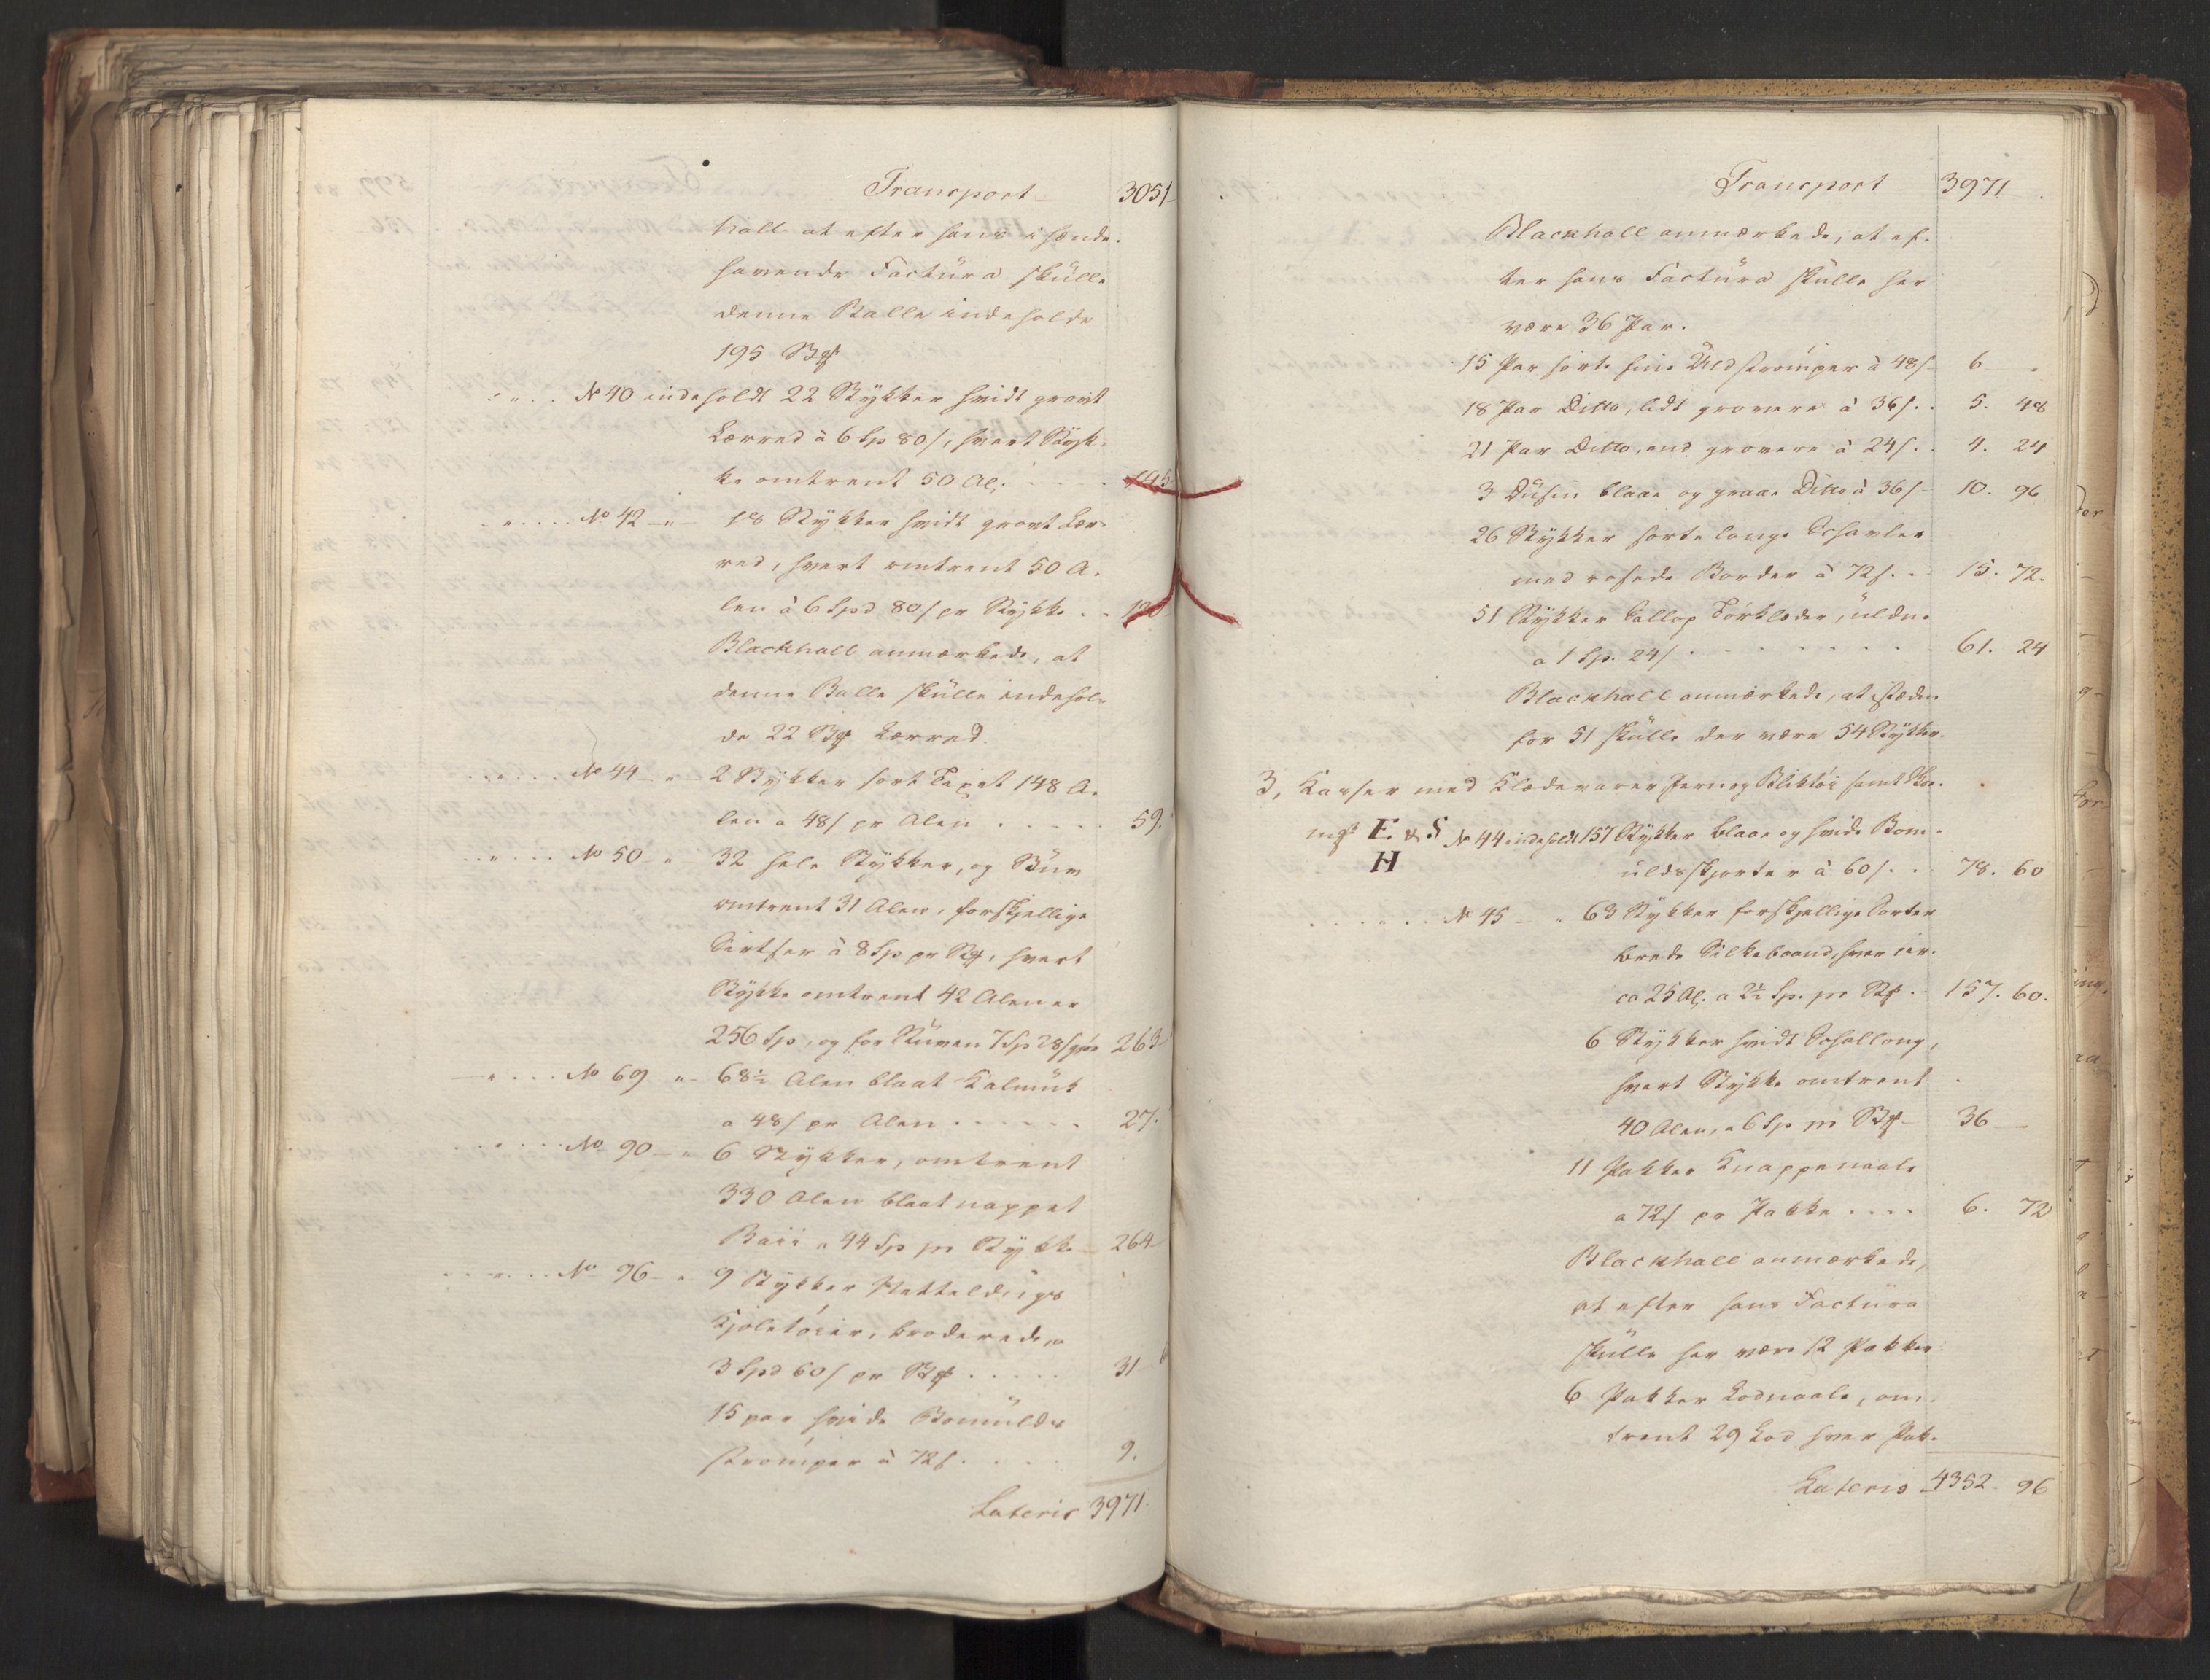 Transport 3051
hall at efter hans i hænde-
havende Factura skulle
denne Balle indeholde
195 St
No 40 indeholdt 22 Stykker hvidt grovt
Lærred à 6 Sp 80 s, hvert Styk-
ke omtrent 50 Al. 145
No 42 - " - 18 Stykker hvidt grovt Lær-
red, hvert omtrent 50 A-
len à 6 Spd 80 s pr Stykke . . 120
Blackhall anmærkede, at
denne Balle skulle indehol-
de 22 St Lærred.
No 44 - " 2 Stykker sort Tepet 148 A-
len a 48 s pr Alen . . . . . 59.
No 50 - " 32 hele Stykker, og Stuv
omtrent 31 Alen, forskjellige
Sirtser à 8 Sp pr St, hvert
Stykke omtrent 42 Alen er
256 Sp, og for Stuven 7 Sp 28 s gjør 263
No 69 " - 68½ Alen blaat Kalmuk
a 48 s pr Alen . . . . . . 27.
No 90 - " 6 Stykker, omtrent
330 Alen blaat nappet
Baii a 44 Sp pr Stykke - 264
No 96 - " 9 Stykker Netteldugs
Kjoletøier, broderede, a
3 Spd 60 s pr St . . . . . 31
15 par hvide Bomulds
strømper à 72 s. . . . . 9.
Lateris 3971.
Transport 3971
Blackhall anmærkede, at ef-
ter hans Factura skulle her
være 36 Par.
15 Par sorte fine Uldstrømper à 48 s 6 "
18 Par Ditto, lidt grovere à 36 s. . 5. 48
21 Par Ditto, end grovere à 24 s. . 4. 24
3 Dusin blaae og graae Ditto à 36 s - 10. 96
26 Stykker sorte lange Schavler
med rosede Border à 72 s. . - 15. 72.
51 Stykker Sallop Tørklæder, uldne
a 1 Sp. 24 s . . . . . . . . 61. 24
Blackhall anmærkede, at istæden
for 51 skulle der være 54 Stykker.
3, Kasser med Klædevarer Jern og Bliktøi samt
mgt E. & S No 44 indeholdt 157 Stykker blaae og hvide Bom-
H
uldsskjorter à 60 s. . 78. 60
No 45 - " 63 Stykker forskjellige Sorter
brede Silkebaand, hver cir-
ca 25 Al. a 2½ Sp. pr St . . 157. 60.
6 Stykker hvidt Schallong,
hvert Stykke omtrent
40 Alen, a 6 Sp pr St - 36 -
11 Pakker Knappenaale
a 72 s pr Pakke . . . . 6. 72
Blackhall anmærkede,
at efter hans Factura
skulle her være 12 Pakker
6 Pakker Lodnaale, om-
trent 29 Lod hver Pak-
Lateris 4352 96